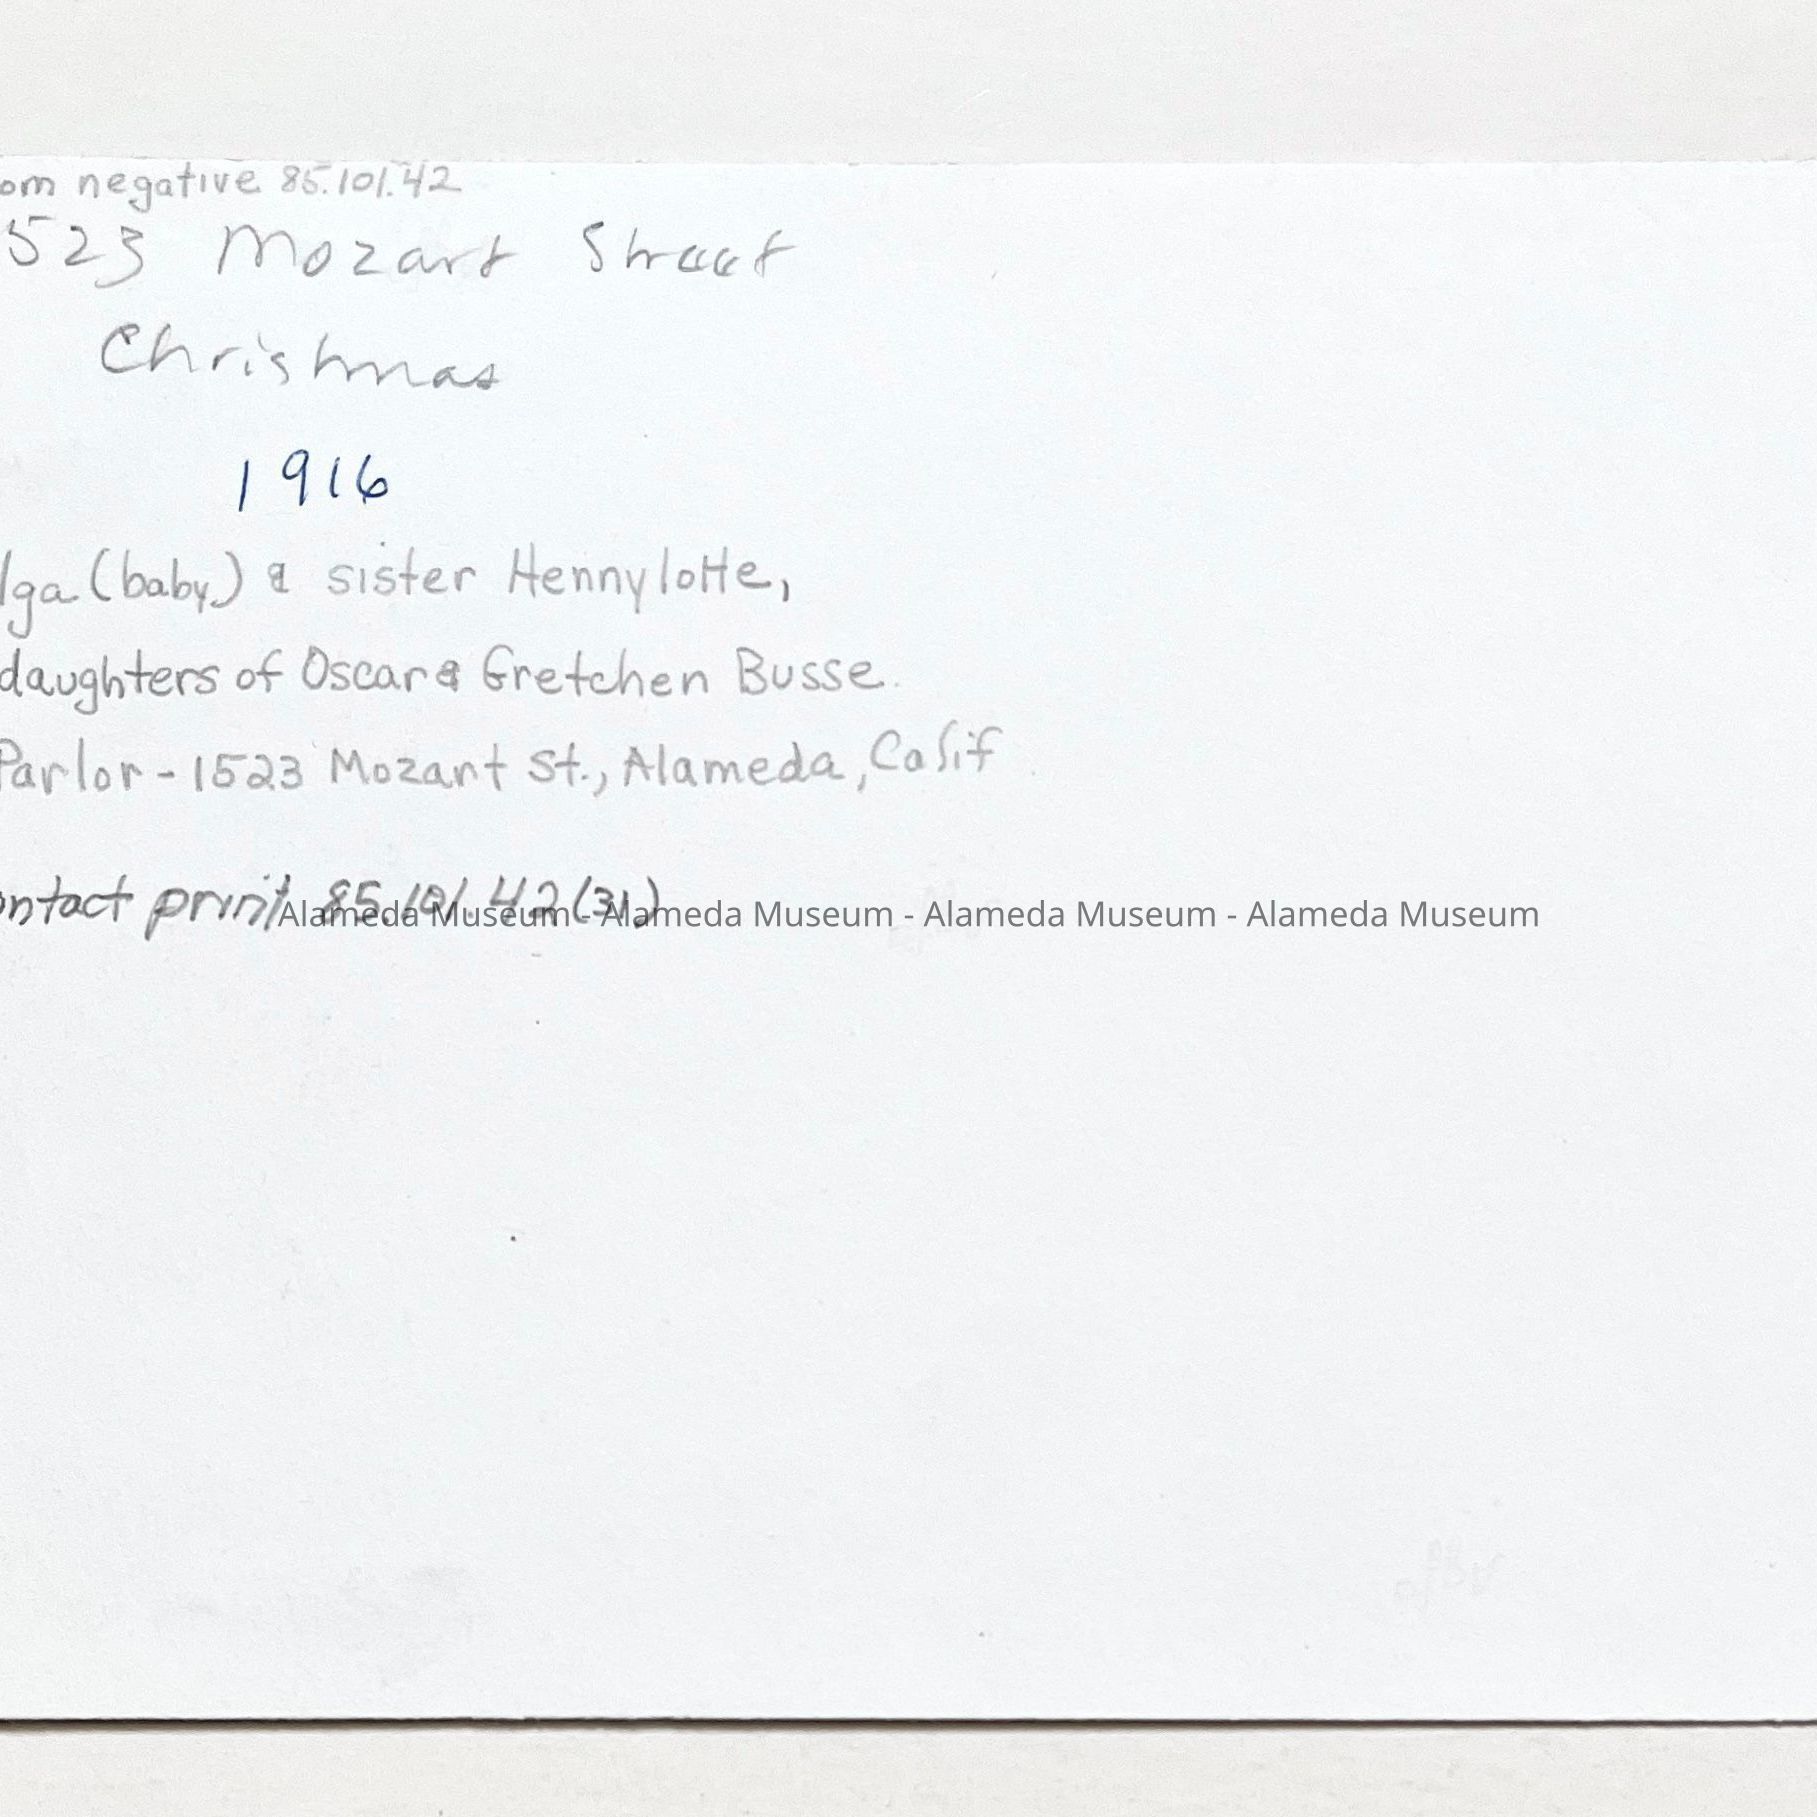 om negative 85.101.42
523 Mozart Street
Christmas
1916
lga (baby) & sister Hennylotte,
daughters of Oscar & Gretchen Busse.
Parlor - 1523 Mozart St., Alameda, Calif
ontact print 85.101.42(31)
Alameda Museum - Alameda Museum - Alameda Museum - Alameda Museum